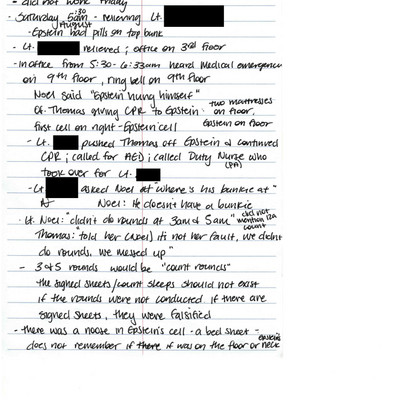 - did not work Friday
- Saturday 5am :30 - relieving Lt.
August
- Epstein had pills on top bunk
- Lt. relieved ; office on 3rd floor
- in office from 5:30 - 6:33am heard Medical emergency
on 9th floor, ring bell on 9th floor
Noel said "Epstein hung himself"
Of. Thomas giving CPR to Epstein two mattresses on floor,
first cell on right - Epstein cell Epstein on floor
- Lt. pushed Thomas off Epstein & continued
CPR ; called for AED ; called Duty Nurse who
(PA)
took over for Lt.
- Lt asked Noel "where's his bunkie at"
Noel: He doesn't have a bunkie
- Lt. Noel: "didn't do rounds at 3am & 5am" did not mention 12A count
Thomas: "told her (Noel) it's not her fault, we didn't
do rounds, we messed up"
- 3 & 5 rounds would be "count rounds"
the signed sheets/count sleeps should not exist
if the rounds were not conducted if there are
signed sheets, they were falsified
- there was a noose in Epstein's cell - a bed sheet -
does not remember if there if was on the floor or Epstein's neck